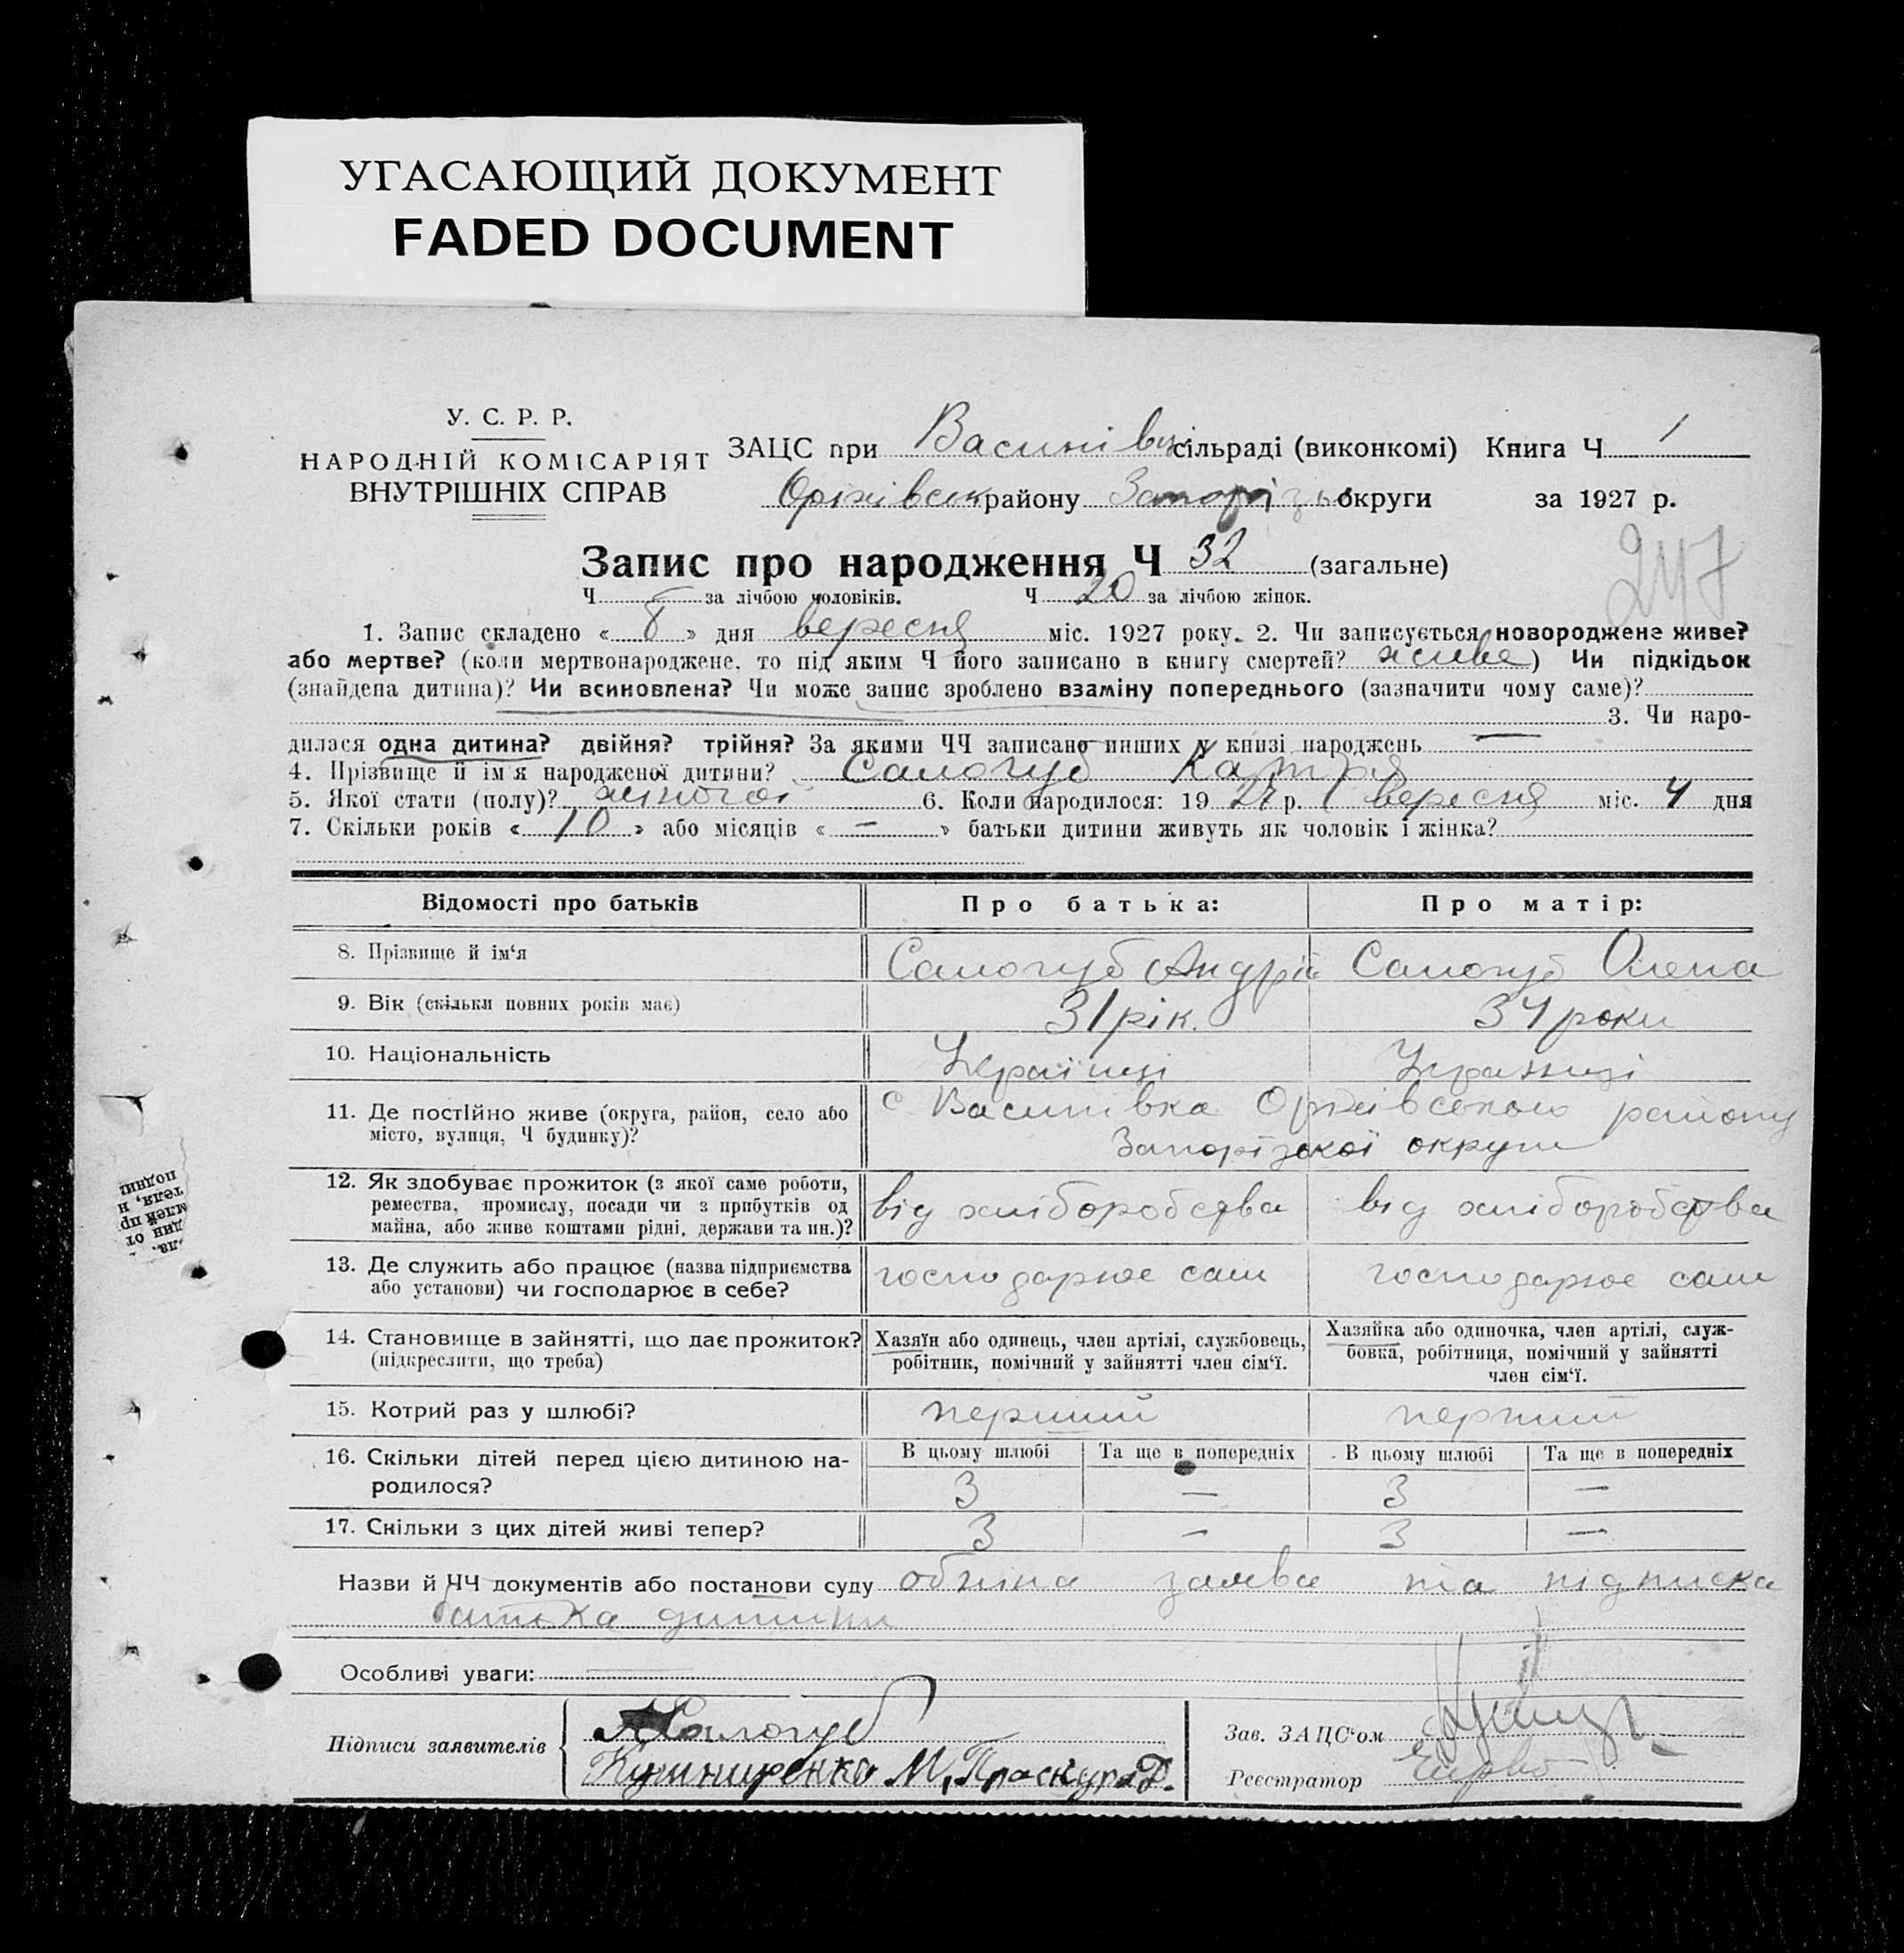 УГАСАЮЩИЙ ДОКУМЕНТ
FADED DOCUMENT
У. С. Р. Р.
НАРОДНІЙ КОМІСАРІЯТ
ВНУТРІШНІХ СПРАВ
ЗАЦС при Василівці сільраді (виконкомі) Книга Ч 1
Оріхівськ району Запорізько округи за 1927 р.
247
Запис про народження Ч 32 (загальне)
Ч за лічбою чоловіків. Ч 20 за лічбою жінок.
1. Запис складено « 8 » дня вересня міс. 1927 року. 2. Чи записується новороджене живе?
або мертве? (коли мертвонароджене, то під яким Ч його записано в книгу смертей? живе) Чи підкідьок
(знайдена дитина)? Чи всиновлена? Чи може запис зроблено взаміну попереднього (зазначити чому саме)?
3. Чи наро-
дилася одна дитина? двійня? трійня? За якими ЧЧ записано инших у книзі народжень —
4. Прізвище й ім'я народженої дитини? Салогуб Катря
5. Якої стати (полу)? жіночої 6. Коли народилося: 19 27 р. вересня міс. 4 дня
7. Скільки років « 10 » або місяців « — » батьки дитини живуть як чоловік і жінка?
Відомості про батьків Про батька: Про матір:
8. Прізвище й ім'я Салогуб Андрій Салогуб Олена
9. Вік (скільки повних років має) 31 рік. 34 роки
10. Національність Українці Українці
11. Де постійно живе (округа, район, село або
місто, вулиця, Ч будинку)?
с Василівка Оріхівського району
Запорізької округи
12. Як здобуває прожиток (з якої саме роботи,
ремества, промислу, посади чи з прибутків од
майна, або живе коштами рідні, держави та ин.)?
від хліборобства від хліборобства
13. Де служить або працює (назва підприємства
або установи) чи господарює в себе?
господарює сам господарює сам
14. Становище в зайнятті, що дає прожиток?
(підкреслити, що треба)
Хазяїн або одинець, член артілі, службовець,
робітник, помічний у зайнятті член сім'ї.
Хазяйка або одиночка, член артілі, служ-
бовка, робітниця, помічний у зайнятті
член сім'ї.
15. Котрий раз у шлюбі? перший перший
16. Скільки дітей перед цією дитиною на-
родилося?
В цьому шлюбі Та ще в попередніх В цьому шлюбі Та ще в попередніх
3 — 3 —
17. Скільки з цих дітей живі тепер? 3 — 3 —
Назви й ЧЧ документів або постанови суду обпіна заява та підписка
батька дитини
Особливі уваги:
Підписи заявителів
А Салогуб
Кушниренко М, Праскура Ф.
Зав. ЗАЦС'ом
Реєстратор